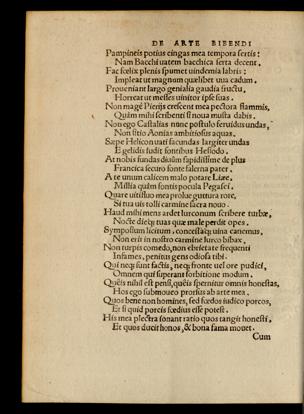 DE ARTE BIBENDI
Pampineis potius cingas mea tempora sertis:
Nam Bacchi vatem bacchica serta decent.
Fac fœlix plenis spumet uindemia labris:
Impleat ut magnum quælibet uua cadum.
Proueniant largo genialia gaudia fructu,
Horreat ut messes uinitor ipse suas.
Non magè Pierijs crescent mea pectora flammis,
Quàm mihi scribenti si noua musta dabis.
Non ego Castalias nunc postulo feruidus undas,
Non sitio Aonias ambitiosus aquas.
Sæpe Heliconuati facundas largiter undas
E gelidis fudit fontibus Hesiodo.
At nobis fundas diuûm sapidissime de plus
Francica securo fonte falerna pater.
A te unum calicem malo potare Liæe,
Millia quàm fontis pocula Pegasei.
Quare uitisluo mea prolue guttura rore,
Si tua uis tolli carmine sacra nouo.
Haud mihi mens ardet lurconum scribere turbæ,
Nocte dieq; tuas quæ male perdit opes.
Symposium licitum, concessaq; uina canemus,
Non erit in nostro carmine lurco bibax.
Non turpis comedo, non ebrietate frequenti
Infames, penitus gens odiosa tibi.
Qui neq; sunt factis, neq; fronte uel ore pudici,
Omnem qui superant sorbitione modum.
Quêis nihil est pensi, quêis spernitur omnis honestas,
Hos ego submoueo prorsus ab arte mea.
Quos bene non homines, sed fœdos iudico porcos,
Et si quid porcis fœdius esse potest.
His mea plectra sonant ratio quos tangit honesti,
Et quos ducit honos, & bona fama mouet.
Cum